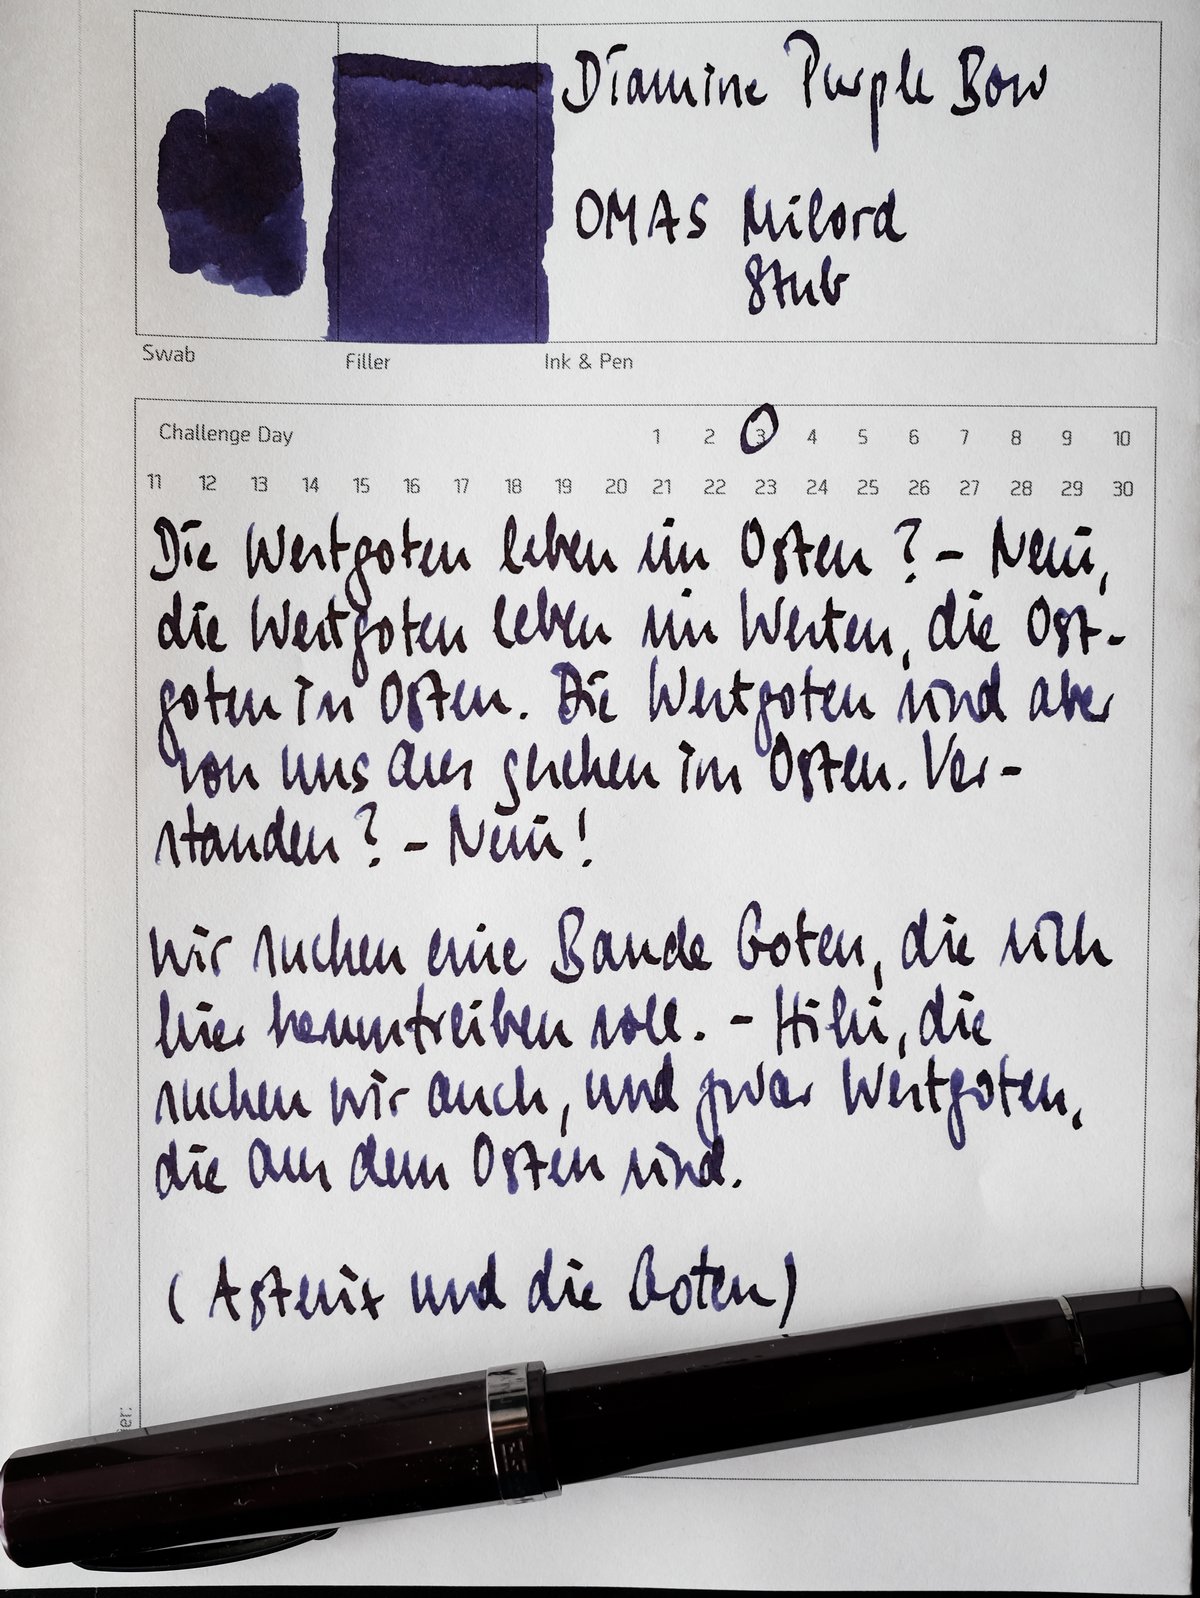 Diamine Purple Bow
OMAS Milord
Stub
Swab
Filler
Ink & Pen
Challenge Day 1 2 3 4 5 6 7 8 9 10
11 12 13 14 15 16 17 18 19 20 21 22 23 24 25 26 27 28 29 30
Die Westgoten leben im Osten? – Nein,
die Westgoten leben im Westen, die Ost-
goten im Osten. Die Westgoten sind aber
von uns aus gesehen im Osten. Ver-
standen? – Nein!
Wir suchen eine Bande Goten, die sich
hier herumtreiben soll. – Hihi, die
suchen wir auch, und zwar Westgoten,
die aus dem Osten sind.
(Asterix und die Goten)